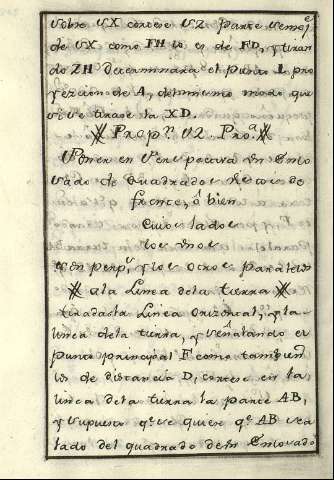 sobre VX cortese VZ parte semejᵉ
de VX como FH lo es de FD, y tiran
do ZH determinara el punto L pro
yeccion de A, del mismo modo que
si se tirase la XD.
Propⁿ. V2. Proᵃ.
Poner en Perspectiva Un Enlo
sado de Quadrados Vistos de
frente, ô bien
Cuios lados
los Unos
esten perpˢ, y los otros paralelos
a la Linea de la tierra
tiradas la Linea Orizontal, y la
linea de la tierra, y señalando el
punto principal F como tambien
los de distancia D, cortese en la
linea de la tierra la parte AB,
y supuesto qᵉ se quiere qᵉ AB sea
lado del quadrado deln Enlosado